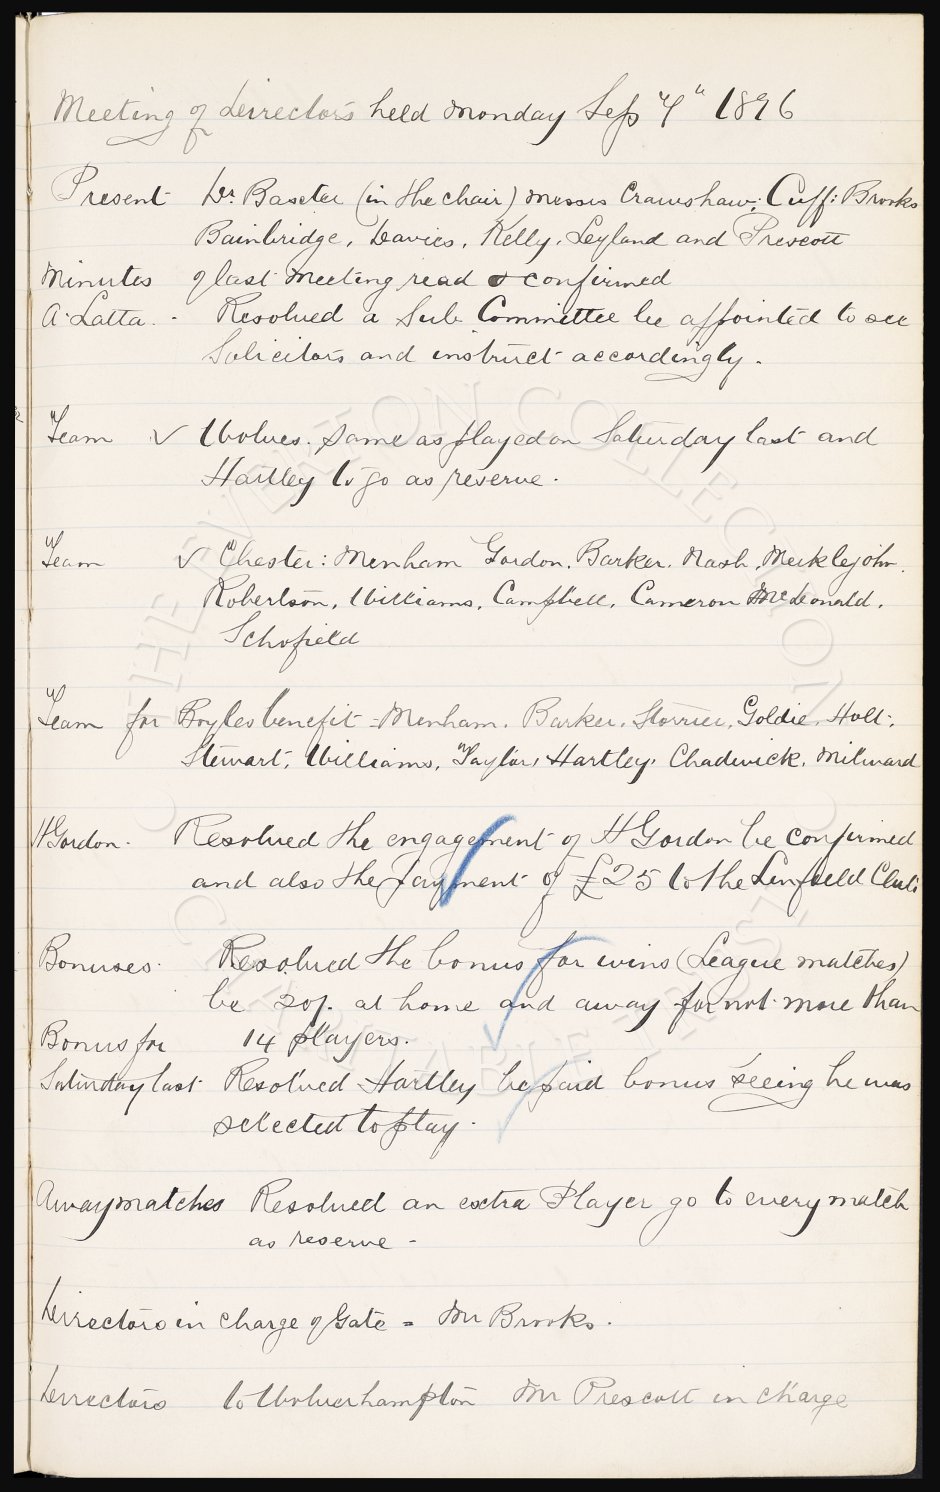 Meeting of Directors held Monday Sep "7" 1896
Present Dr. Baxter (in the chair) Messrs Crawshaw: Cuff: Brooks
Bainbridge, Davies, Kelly, Leyland and Prescott
Minutes of last meeting read & confirmed
A. Latta. - Resolved a Sub Committee be appointed to see
Solicitors and instruct accordingly.
Team ✓ Wolves. Same as played on Saturday last and
Hartley to go as reserve.
Team ✓ Chester: Menham Gordon, Barker, Nash, Meiklejohn,
Robertson, Williams, Campbell, Cameron McDonald,
Schofield
Team for Boyles benefit = Menham, Barker, Storrier, Goldie, Holt,
Stewart, Williams, Taylor, Hartley, Chadwick, Milward
H Gordon. Resolved the engagement of H Gordon be confirmed
and also the payment of £25 to the Linfield Club
Bonuses. Resolved the bonus for wins (League matches)
be 20/. at home and away for not more than
Bonus for 14 players.
Saturday last Resolved Hartley be paid bonus seeing he was
selected to play.
Away matches Resolved an extra Player go to every match
as reserve -
Directors in charge of Gate = Mr Brooks.
Directors to Wolverhampton Mr Prescott in charge
THE EVERTON COLLECTION
CHARITABLE TRUST